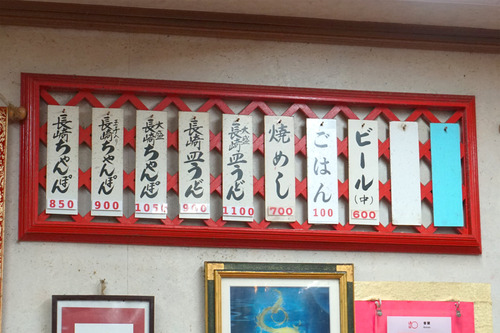 長崎ちゃんぽん
850
玉子入り
長崎ちゃんぽん
900
大盛
長崎ちゃんぽん
1050
長崎皿うどん
900
大盛
長崎皿うどん
1100
焼めし
700
ごはん
100
ビール(中)
600